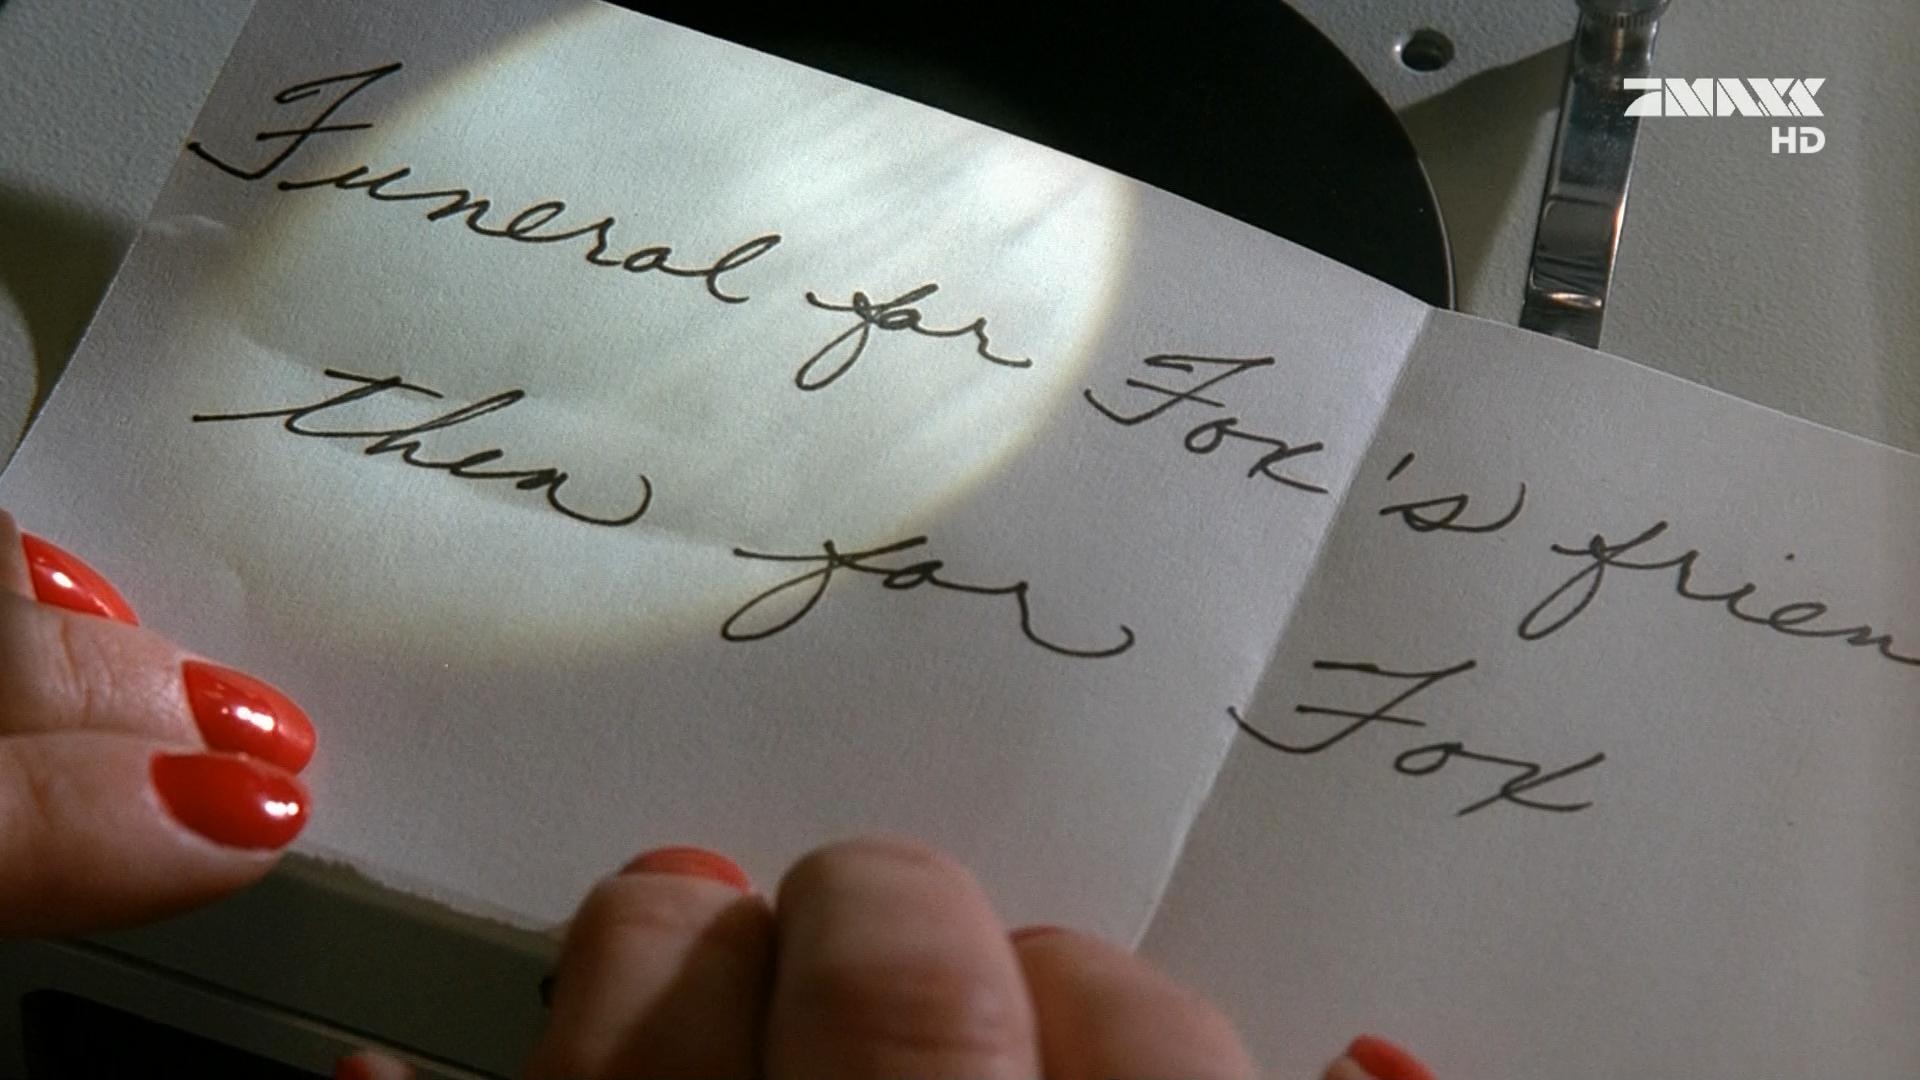 7MAXX
HD
Funeral for Fox's frien
then for Fox